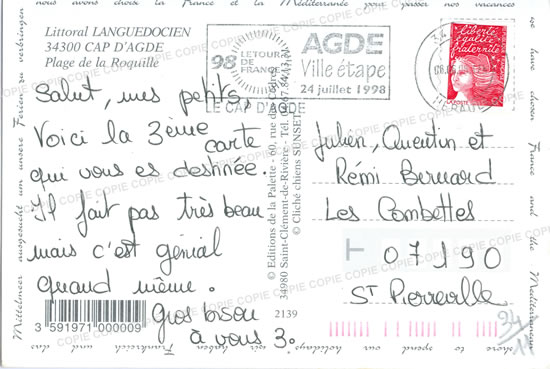 Littoral LANGUEDOCIEN
34300 CAP D'AGDE
Plage de la Roquille
98 LE TOUR DE FRANCE
AGDE
Ville étape
24 juillet 1998
LE CAP D'AGDE
Liberté
égalité
fraternité
LA POSTE
HERAULT
Salut, mes petits,
Voici la 3ème carte
qui vous es destinée.
Il fait pas très beau
mais c'est génial
quand même.
Gros bisou
à vous 3.
© Editions de la Palette - 60, rue des
34980 Saint-Clément-de-Rivière - Tél.
© Cliché chiens SUNSET
2139
Julien, Quentin et
Rémi Bernard
Les Combettes
07190
St Pierreville
3 591971 000009
COPIE COPIE COPIE
Mittelmeer ausgesucht um unsere Ferien zu verbringen
we have chosen France and the Mediterranean
shore to spend our holidays